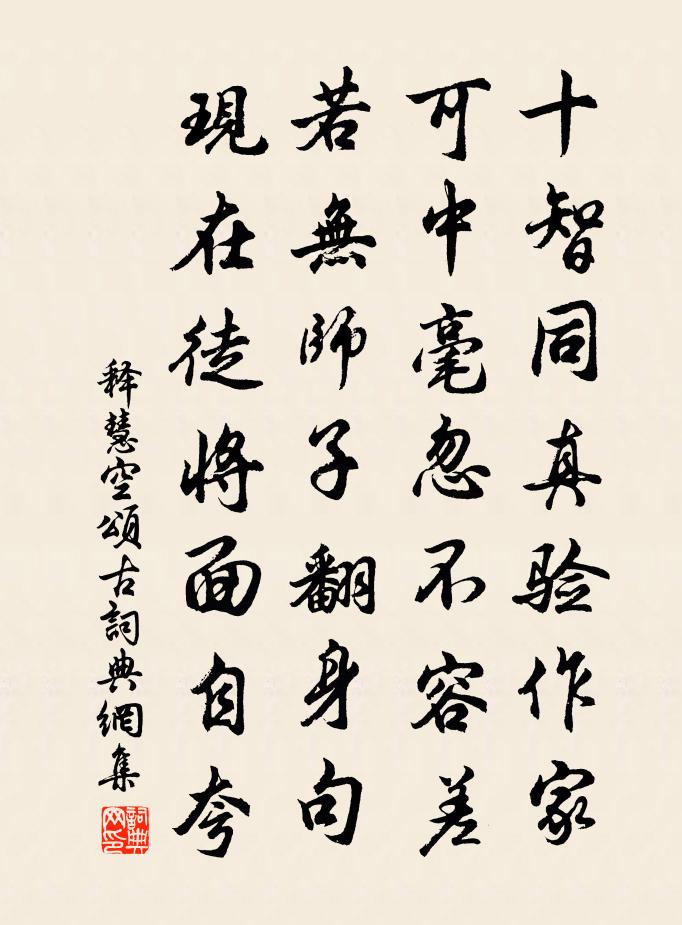 十智同真验作家
可中毫忽不容差
若無師子翻身句
現在徒將面自夸
释慧空頌古詞典網集
詞典网印